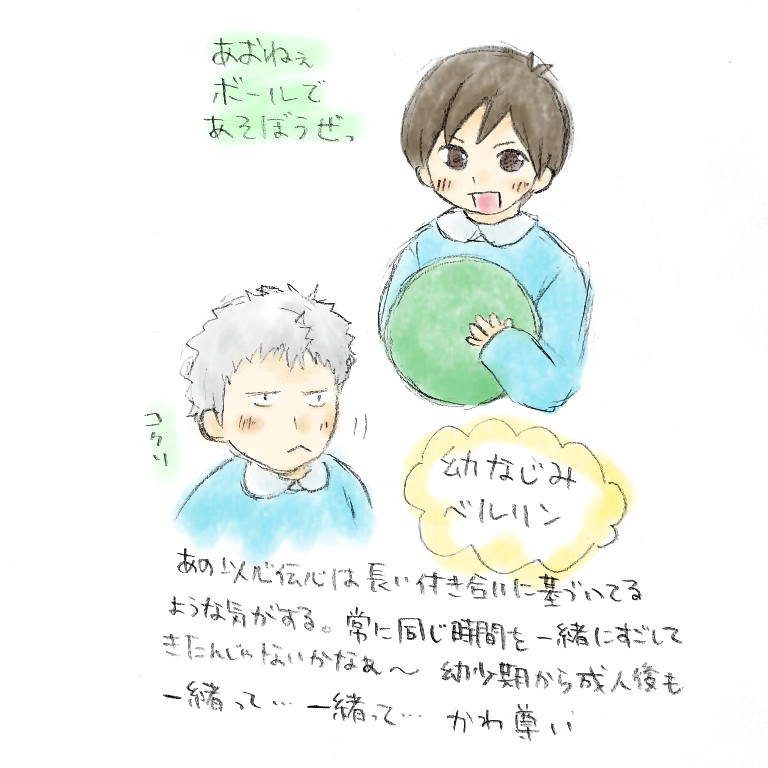 あおねぇ
ボールで
あそぼうぜっ
コクリ
幼なじみ
ベルリン
あの以心伝心は長い付き合いに基づいてる
ような気がする。常に同じ時間を一緒にすごして
きたんじゃないかなぁ〜 幼少期から成人後も
一緒って… 一緒って… かわ尊い